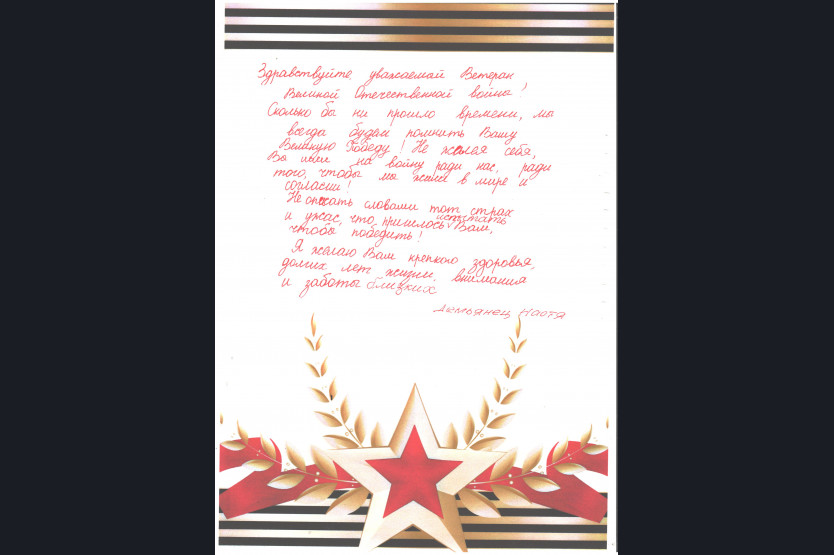 Здравствуйте уважаемый Ветеран
Великой Отечественной войны!
Сколько бы ни прошло времени, мы
всегда будем помнить Вашу
Великую Победу! Не жалея себя,
Вы шли на войну ради нас, ради
того, чтобы мы жили в мире и
согласии!
Не описать словами тот страх
и ужас, что пришлось испытать Вам,
чтобы победить!
Я желаю Вам крепкого здоровья,
долгих лет жизни, внимания
и заботы близких.
Демьянец Настя